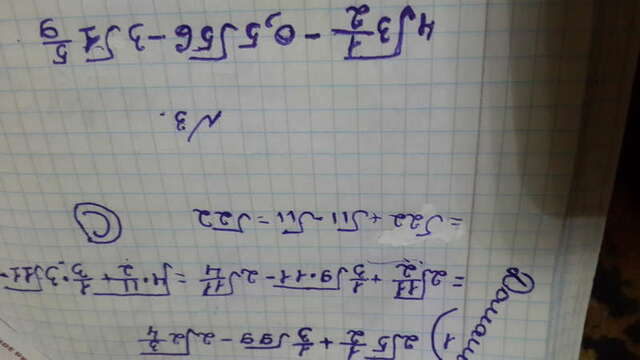 1) 2√5 1/2 + 1/3 √99 - 2√2 3/4
= 2√11/2 + 1/3 √9·11 - 2√11/4 = √4·11/2 + 1/3 · 3√11 -
= √22 + √11 - √11 = √22 C
N3.
4√3 1/2 - 0,5√56 - 3√1 5/9